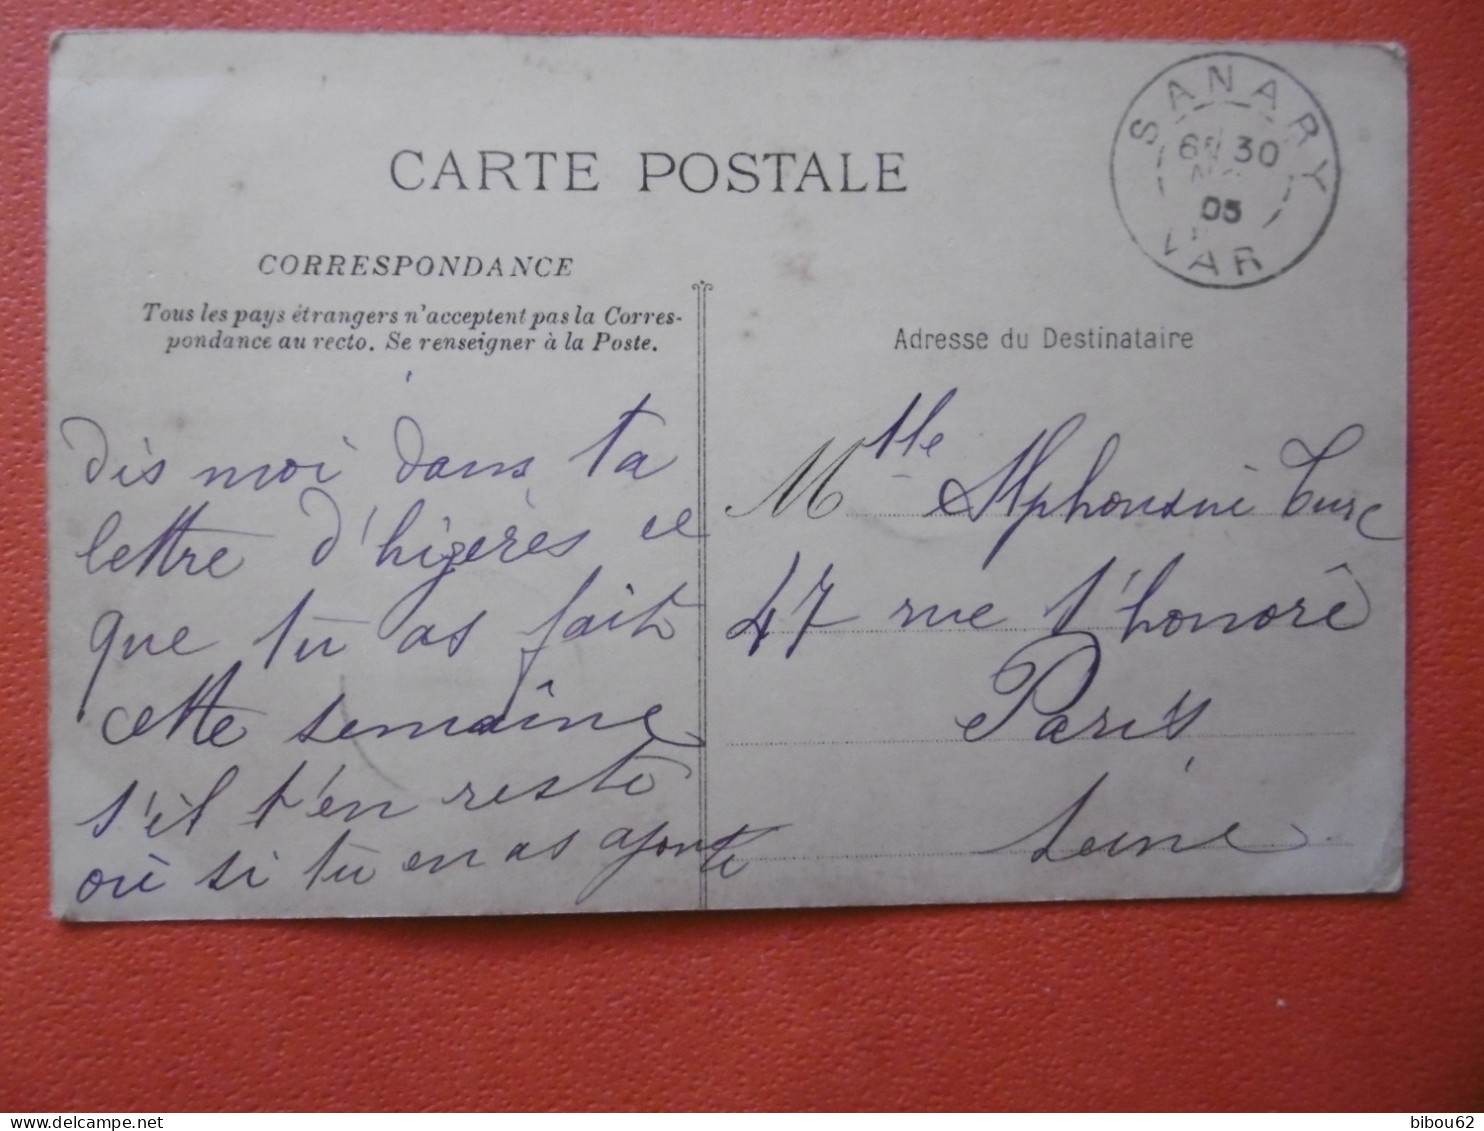 CARTE POSTALE
SANARY
30
05
VAR
CORRESPONDANCE
Tous les pays étrangers n'acceptent pas la Corres-
pondance au recto. Se renseigner à la Poste.
Dis moi dans ta
lettre d'higères ce
que tu as fait
cette semaîne
s'il t'en reste
où si tu en as ajouté
Adresse du Destinataire
Mlle Alphonsine Turc
47 rue St honoré
Paris
Seine
bibou62